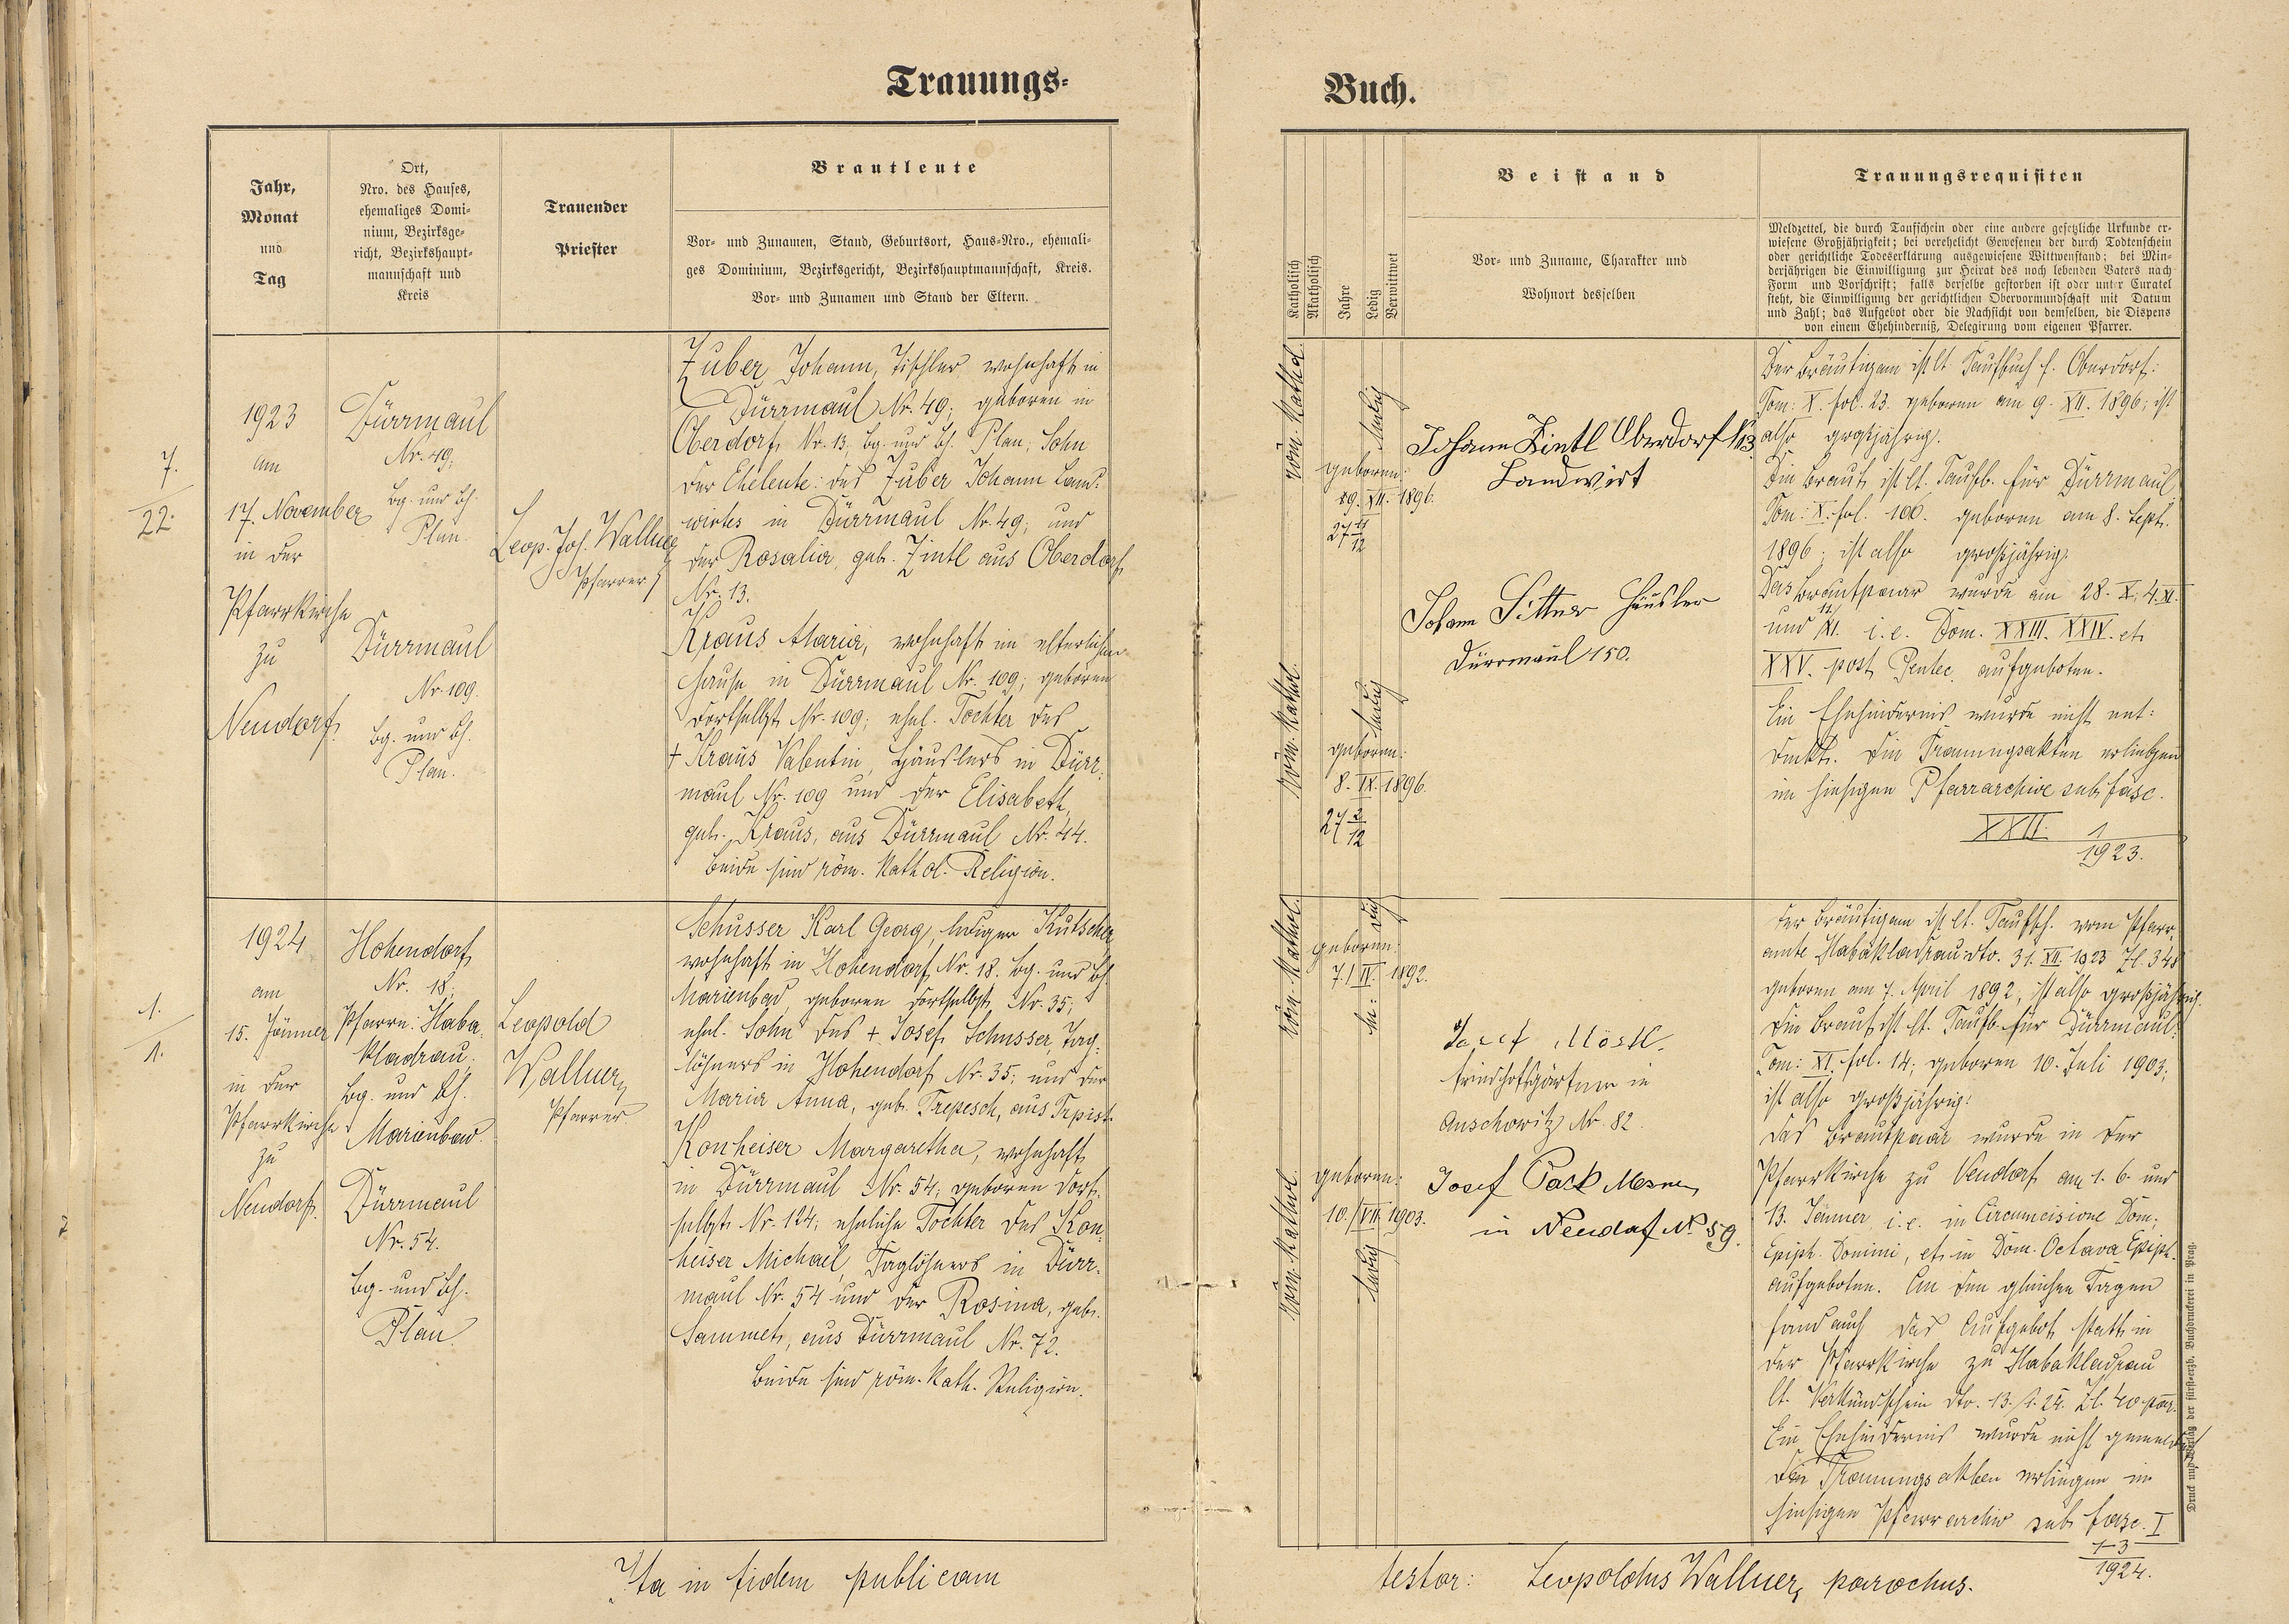 Trauungs-
Jahr,
Monat
und
Tag
Ort,
Nro. des Hauses,
ehemaliges Domi-
nium, Bezirksge-
richt, Bezirkshaupt-
mannschaft und
Kreis
Trauender
Priester
Brautleute
Vor- und Zunamen, Stand, Geburtsort, Haus-Nro., ehemali-
ges Dominium, Bezirksgericht, Bezirkshauptmannschaft, Kreis.
Vor- und Zunamen und Stand der Eltern.
7.
22.
1923
am
17. November
in der
Pfarrkirche
zu
Neudorf.
Dürrmaul
Nr. 49;
Bg. und Bh.
Plan.
Dürrmaul
Nr. 109.
Bg. und Bh.
Plan.
Leop. Jos. Wallner
Pfarrer
Zuber Johann, Tischler wohnhaft in
Dürrmaul Nr. 49; geboren in
Oberdorf Nr. 13; Bg. und Bh. Plan; Sohn
der Eheleute: des Zuber Johann Land-
wirtes in Dürrmaul Nr. 49; und
der Rosalia, geb. Zintl aus Oberdorf
Nr. 13.
Kraus Maria, wohnhaft im elterlichen
Hause in Dürrmaul Nr. 109; geboren
dortselbst Nr. 109; ehel. Tochter des
† Kraus Valentin, Häuslers in Dürr-
maul Nr. 109 und der Elisabeth,
geb. Kraus, aus Dürrmaul Nr. 44.
Beide sind röm. kathol. Religion.
1.
1.
1924
am
15. Jänner
in der
Pfarrkirche
zu
Neudorf.
Hohendorf
Nr. 18;
Pfarre: Haba-
kladrau;
Bg. und Bh.
Marienbad.
Dürrmaul
Nr. 54.
Bg. und Bh.
Plan.
Leopold
Wallner
Pfarrer
Schusser Karl Georg, lediger Kutscher,
wohnhaft in Hohendorf Nr. 18. Bg. und Bh.
Marienbad, geboren dortselbst Nr. 35;
ehel. Sohn des † Josef Schusser, Tag-
löhners in Hohendorf Nr. 35; und der
Maria Anna, geb. Trepesch, aus Trpist.
Konheiser Margaretha, wohnhaft
in Dürrmaul Nr. 54; geboren dort-
selbst Nr. 124; eheliche Tochter des Kon-
heiser Michael, Taglöhners in Dürr-
maul Nr. 54 und der Rosina, geb.
Sammet, aus Dürrmaul Nr. 72.
Beide sind röm. kath. Religion.
Ita in fidem publicam
Buch.
Katholisch
Akatholisch
Jahre
Ledig
Verwittwet
Beistand
Vor- und Zuname, Charakter und
Wohnort desselben
Trauungsrequisiten
Meldzettel, die durch Taufschein oder eine andere gesetzliche Urkunde er-
wiesene Großjährigkeit; bei verehelicht Gewesenen der durch Todtenschein
oder gerichtliche Todeserklärung ausgewiesene Wittwenstand; bei Min-
derjährigen die Einwilligung zur Heirat des noch lebenden Vaters nach
Form und Vorschrift; falls derselbe gestorben ist oder unter Curatel
steht, die Einwilligung der gerichtlichen Obervormundschaft mit Datum
und Zahl; das Aufgebot oder die Nachsicht von demselben, die Dispens
von einem Ehehinderniß, Delegirung vom eigenen Pfarrer.
röm. kathol.
ledig
geboren:
XII. 1896.
Johann Zintl Oberdorf N13
Landwirt
Johann Sittner Häusler
Dürrmaul 150.
röm. kathol.
ledig
geboren:
8. IX. 1896.
27 2/12
Der Bräutigam ist lt. Taufbuch f. Oberdorf:
Tom: X. fol. 23. geboren am 9. XII. 1896; ist
also großjährig.
Die Braut ist lt. Taufb. für Dürrmaul
Tom: X. fol. 100. geboren am 8. Sept.
1896; ist also großjährig.
Das Brautpaar wurde am 28. X; 4. XI.
und 11/XI. i.e. Dom. XXIII. XXIV. et
XXV. post Pentec. aufgeboten.
Ein Ehehindernis wurde nicht ent-
deckt. Die Trauungsakten erliegen
im hiesigen Pfarrarchive sub fasc.
XXII. 1
1923.
röm. kathol.
ledig
geboren:
7./IV. 1892.
Josef Mösl.
Friedhofsgärtner in
Auschowitz Nr. 82.
röm. kathol.
ledig
geboren:
10./VII. 1903.
Josef Pack Mesner
in Neudorf No 59.
Der Bräutigam ist lt. Taufsch. vom Pfarr-
amte Habakladrau dto. 31. XII. 1923 Zl. 348
geboren am 7. April 1892; ist also großjährig.
Die Braut ist lt. Taufb. für Dürrmaul:
Tom: XI. fol. 14; geboren 10. Juli 1903;
ist also großjährig.
Das Brautpaar wurde in der
Pfarrkirche zu Neudorf am 1. 6. und
13. Jänner i.e. in Circumcisione Dom;
Epiph. Domini, et in Dom. Octava Epiph.
aufgeboten. An den gleichen Tagen
fand auch das Aufgebot statt in
der Pfarrkirche zu Habakladrau
lt. Verkündschein dto. 13./1. 24. Zl. 40 par.
Ein Ehehindernis wurde nicht gemeldet
Die Trauungsakten erliegen im
hiesigen Pfarrarchiv sub fasc. I
1-3
1924.
testor: Leopoldus Wallner, parochus.
Druck und Verlag der fürst-erzb. Buchdruckerei in Prag.